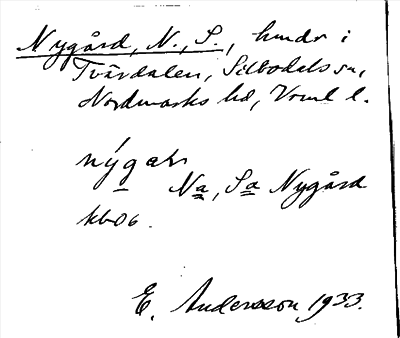 Nygård, N., S., hmdr i
Tvärdalen, Silbodals sn,
Nordmarks hd, Vrml l.
nýgaḷṛ
Na, Sa Nygård
kb06.
E. Andersson 1933.